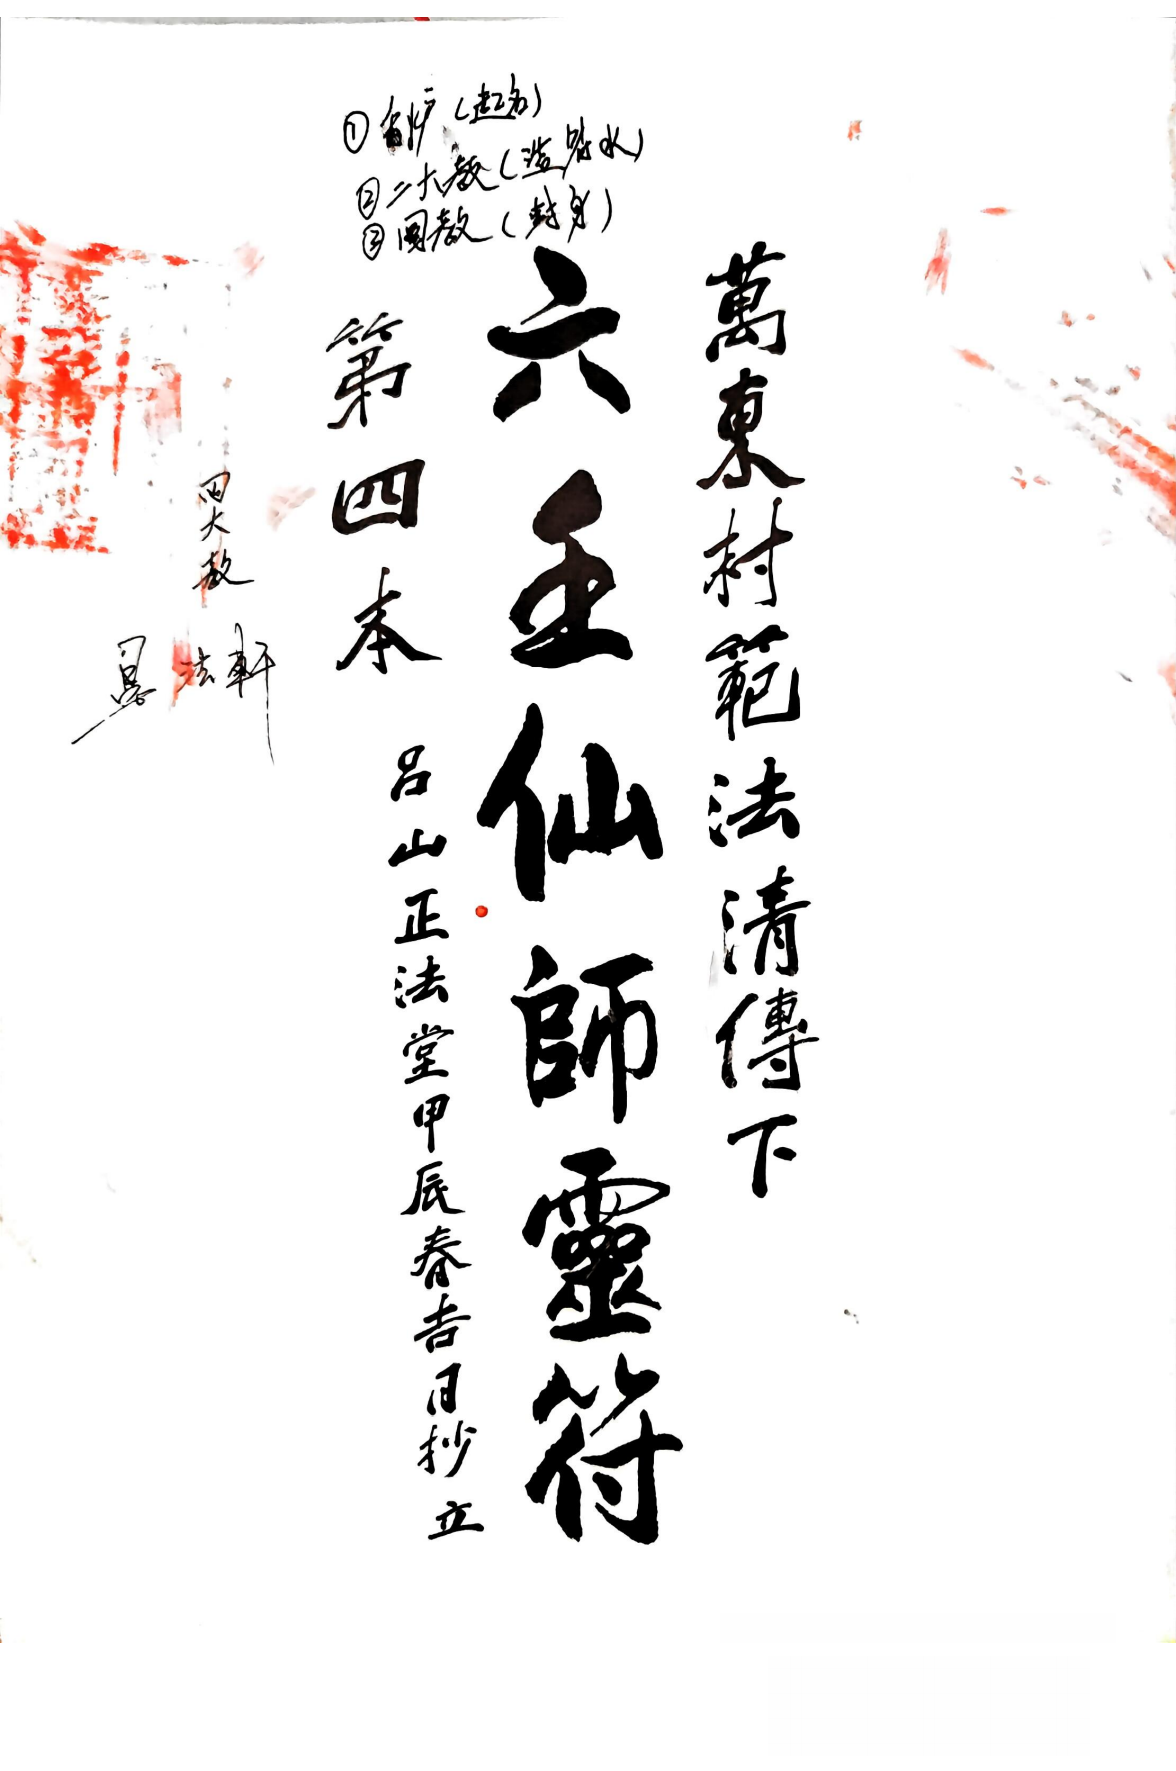 萬東村範法清傳下
六壬仙師靈符
第四本
呂山正法堂甲辰春吉日抄立
①香炉(起名)
②二大教(造符水)
③闔教(封身)
四大教
法軒